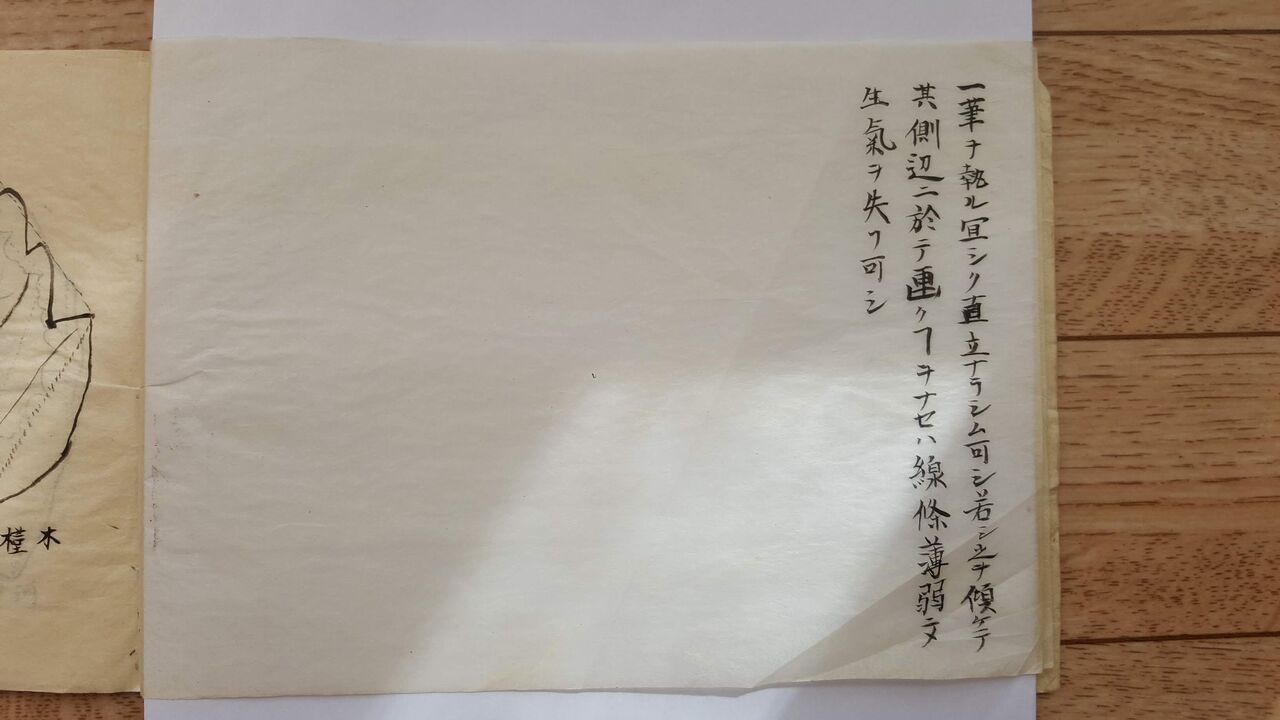 一筆ヲ執ル宜シク直立ナラシム可シ若シ之ヲ傾ケテ
其側辺ニ於テ画クヿヲナセハ線條薄弱ニ〆
生氣ヲ失フ可シ
木槿